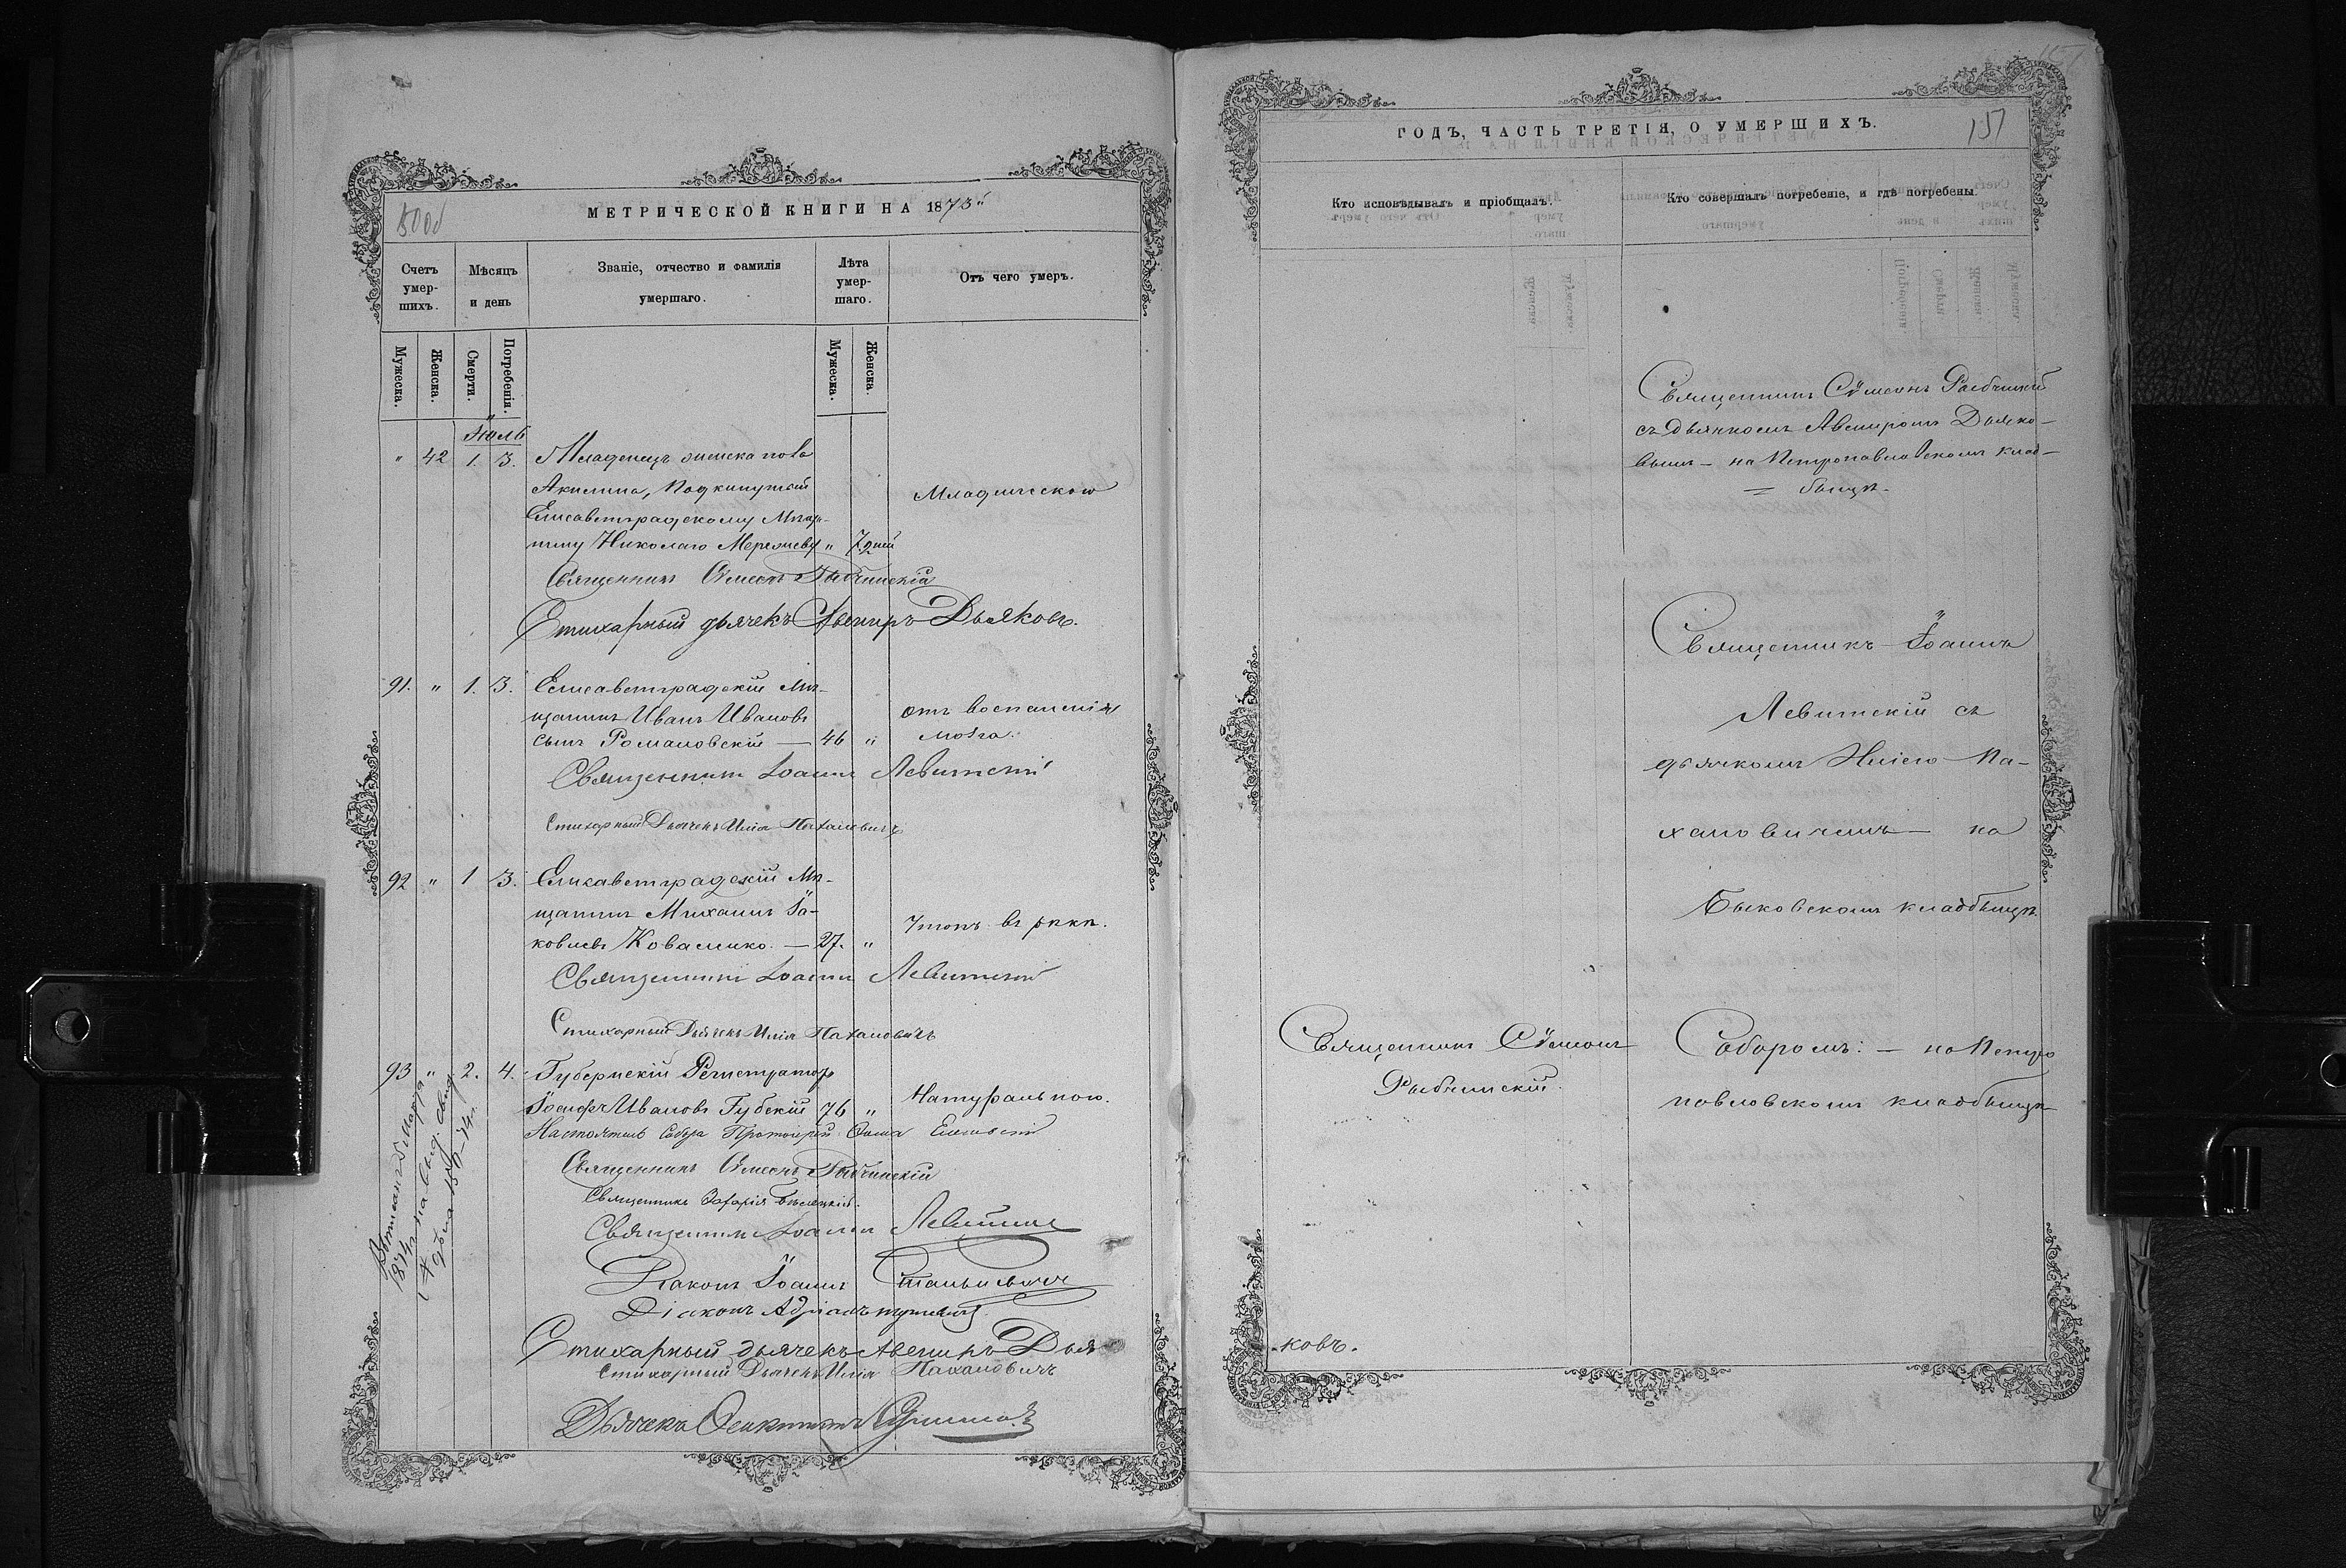 МЕТРИЧЕСКОЙ КНИГИ НА 1873
Счетъ умер-шихъ.
Мѣсяцъ и день
Званіе, отчество и фамилія умершаго.
Лѣта умер-шаго.
Отъ чего умеръ.
Мужеска.
Женска.
Смерти.
Погребенія.
Мужеска.
Женска.
Іюль
" 42 1. 3. Младенецъ
Акилина, Подкинутый
Елисаветградскому Мѣща-
нину Николаю " 7 дней
Младенческою
Священникъ Сѵмеонъ Рыбчинскій
Стихарный дьячекъ Авениръ Дьяковъ.
91. " 1. 3. Елисаветградскій Мѣ-
щанинъ Иванъ Ивановъ
сынъ Романовскій — 46 "
отъ воспаленія
мозга.
Священникъ Іоаннъ Левитскій
Стихарный Дьячекъ Илія Пахаловичъ
92 " 1 3. Елисаветградскій Мѣ-
щанинъ Михаилъ Іа-
ковлевъ Коваленко. — 27. "
утопъ въ рѣкѣ.
Священникъ Іоаннъ Левитскій
Стихарный Дьячекъ Илія Пахаловичъ
93 " 2. 4. Губернскій Регистраторъ
Іосифъ Ивановъ Губскій 76 "
Натуральною.
Настоятель Собора Протоіерей
Священникъ Сѵмеонъ Рыбчинскій
Священникъ Захарія
Священникъ Іоаннъ Левитскій
Діаконъ Іоаннъ
Діаконъ Адріанъ
Стихарный дьячекъ Авениръ Дья-
Стихарный Дьячекъ Илія Пахаловичъ
Дьячекъ
1874 г. на
ГОДЪ, ЧАСТЬ ТРЕТІЯ, О УМЕРШИХЪ.
151
Кто исповѣдывалъ и пріобщалъ.
Кто совершалъ погребеніе, и гдѣ погребены.
Священникъ Сѵмеонъ Рыбчинскій
съ дьячкомъ Авениромъ Дьяко-
вымъ — на Петропавловскомъ клад-
= бищѣ.
Священникъ Іоаннъ
Левитскій съ
дьячкомъ Иліею Па-
халовичемъ — на
Быковскомъ кладбищѣ
Священникъ Сѵмеонъ
Рыбчинскій.
Соборомъ: — на Петро
павловскомъ кладбищѣ
ковъ.